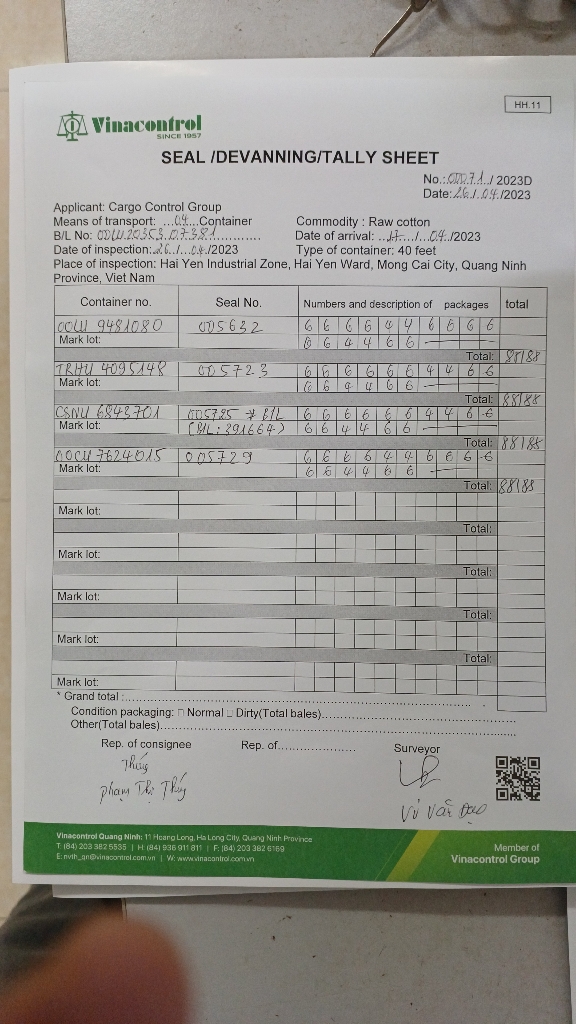 HH.11
Vinacontrol
SINCE 1957
SEAL /DEVANNING/TALLY SHEET
No.:00071./ 2023D
Date:26./.04./2023
Applicant: Cargo Control Group
Means of transport: ...04...Container
Commodity : Raw cotton
B/L No: OOLU20353.07381.............
Date of arrival: ...17..../....04../2023
Date of inspection:.26.../....04./2023
Type of container: 40 feet
Place of inspection: Hai Yen Industrial Zone, Hai Yen Ward, Mong Cai City, Quang Ninh
Province, Viet Nam
Container no. Seal No. Numbers and description of packages total
OOLU 9481080 005632 6 6 6 6 4 4 6 6 6 6
Mark lot: 6 6 4 4 6 6
Total: 88/88
TRHU 4095148 005723 6 6 6 6 6 6 4 4 6 6
Mark lot: 6 6 4 4 6 6
Total: 88/88
CSNU 6843701 005725 # B/L 6 6 6 6 6 6 4 4 6 6
Mark lot: (B/L: 391664) 6 6 4 4 6 6
Total: 88/88
OOCU 7624015 005729 6 6 6 6 4 4 6 6 6 6
Mark lot: 6 6 4 4 6 6
Total: 88/88
Mark lot:
Total:
Mark lot:
Total:
Mark lot:
Total:
Mark lot:
Total:
Mark lot:
* Grand total :
Condition packaging: □ Normal □ Dirty(Total bales)
Other(Total bales)
Rep. of consignee Rep. of Surveyor
Thúy
Phạm Thị Thúy
Vũ Văn Đạo
Vinacontrol Quang Ninh: 11 Hoang Long, Ha Long City, Quang Ninh Province
T: (84) 203 382 5535 | H: (84) 936 911 811 | F: (84) 203 382 6169
E: nvth_qn@vinacontrol.com.vn | W: www.vinacontrol.com.vn
Member of
Vinacontrol Group